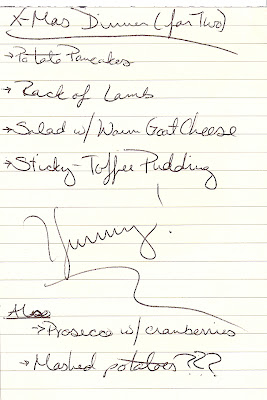 X-Mas Dinner (for Two)
→Potato Pancakes
→Rack of Lamb
→Salad w/ Warm Goat Cheese
→Sticky-Toffee Pudding
Yummy!
Also
→Prosecco w/ cranberries
→Mashed potatoes???